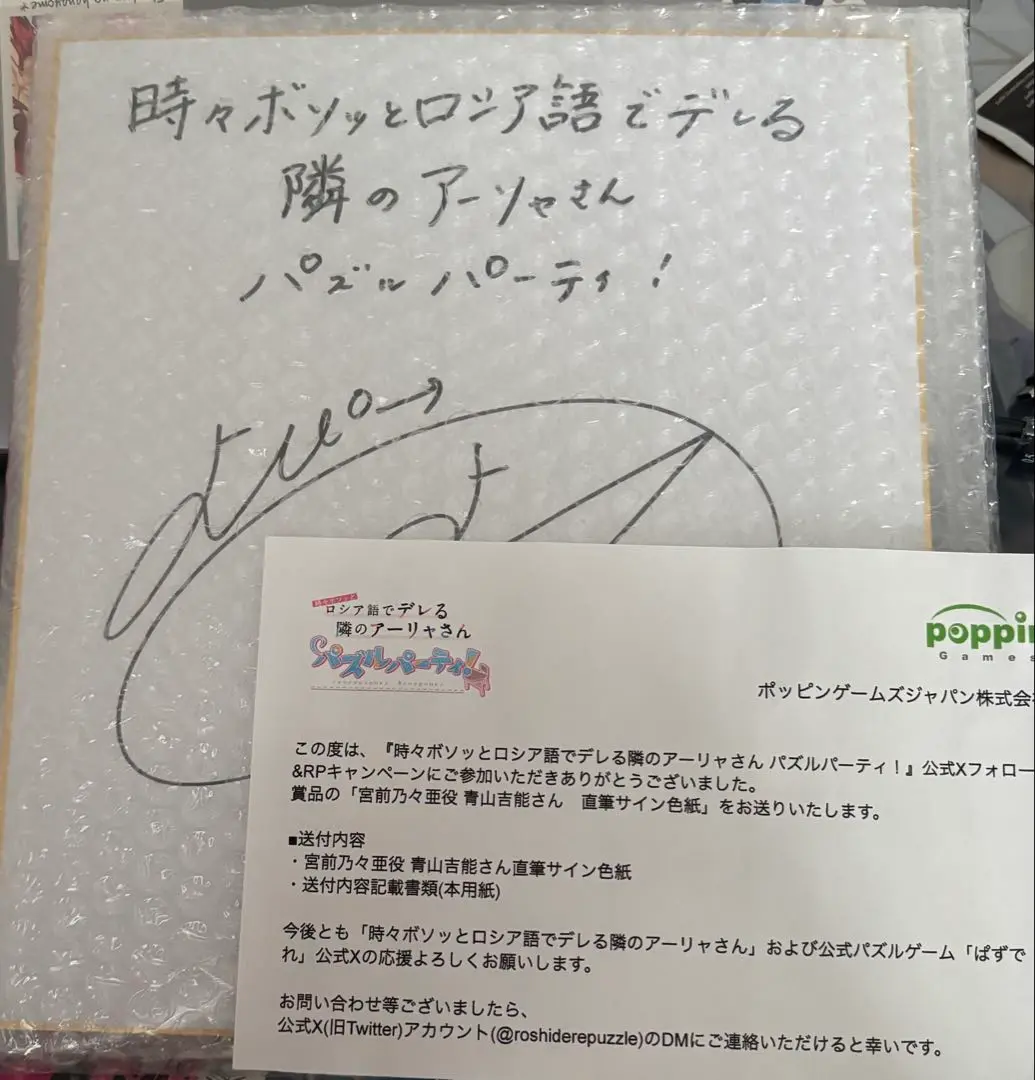 時々ボソッとロシア語でデレる
隣のアーリャさん
パズルパーティ！
時々ボソッと
ロシア語でデレる
隣のアーリャさん
パズルパーティ！
poppin
Games
ポッピンゲームズジャパン株式会
この度は、『時々ボソッとロシア語でデレる隣のアーリャさん パズルパーティ！』公式Xフォロー
&RPキャンペーンにご参加いただきありがとうございました。
賞品の「宮前乃々亜役 青山吉能さん　直筆サイン色紙」をお送りいたします。
■送付内容
・宮前乃々亜役 青山吉能さん直筆サイン色紙
・送付内容記載書類(本用紙)
今後とも「時々ボソッとロシア語でデレる隣のアーリャさん」および公式パズルゲーム「ぱずで
れ」公式Xの応援よろしくお願いします。
お問い合わせ等ございましたら、
公式X(旧Twitter)アカウント(@roshiderepuzzle)のDMにご連絡いただけると幸いです。